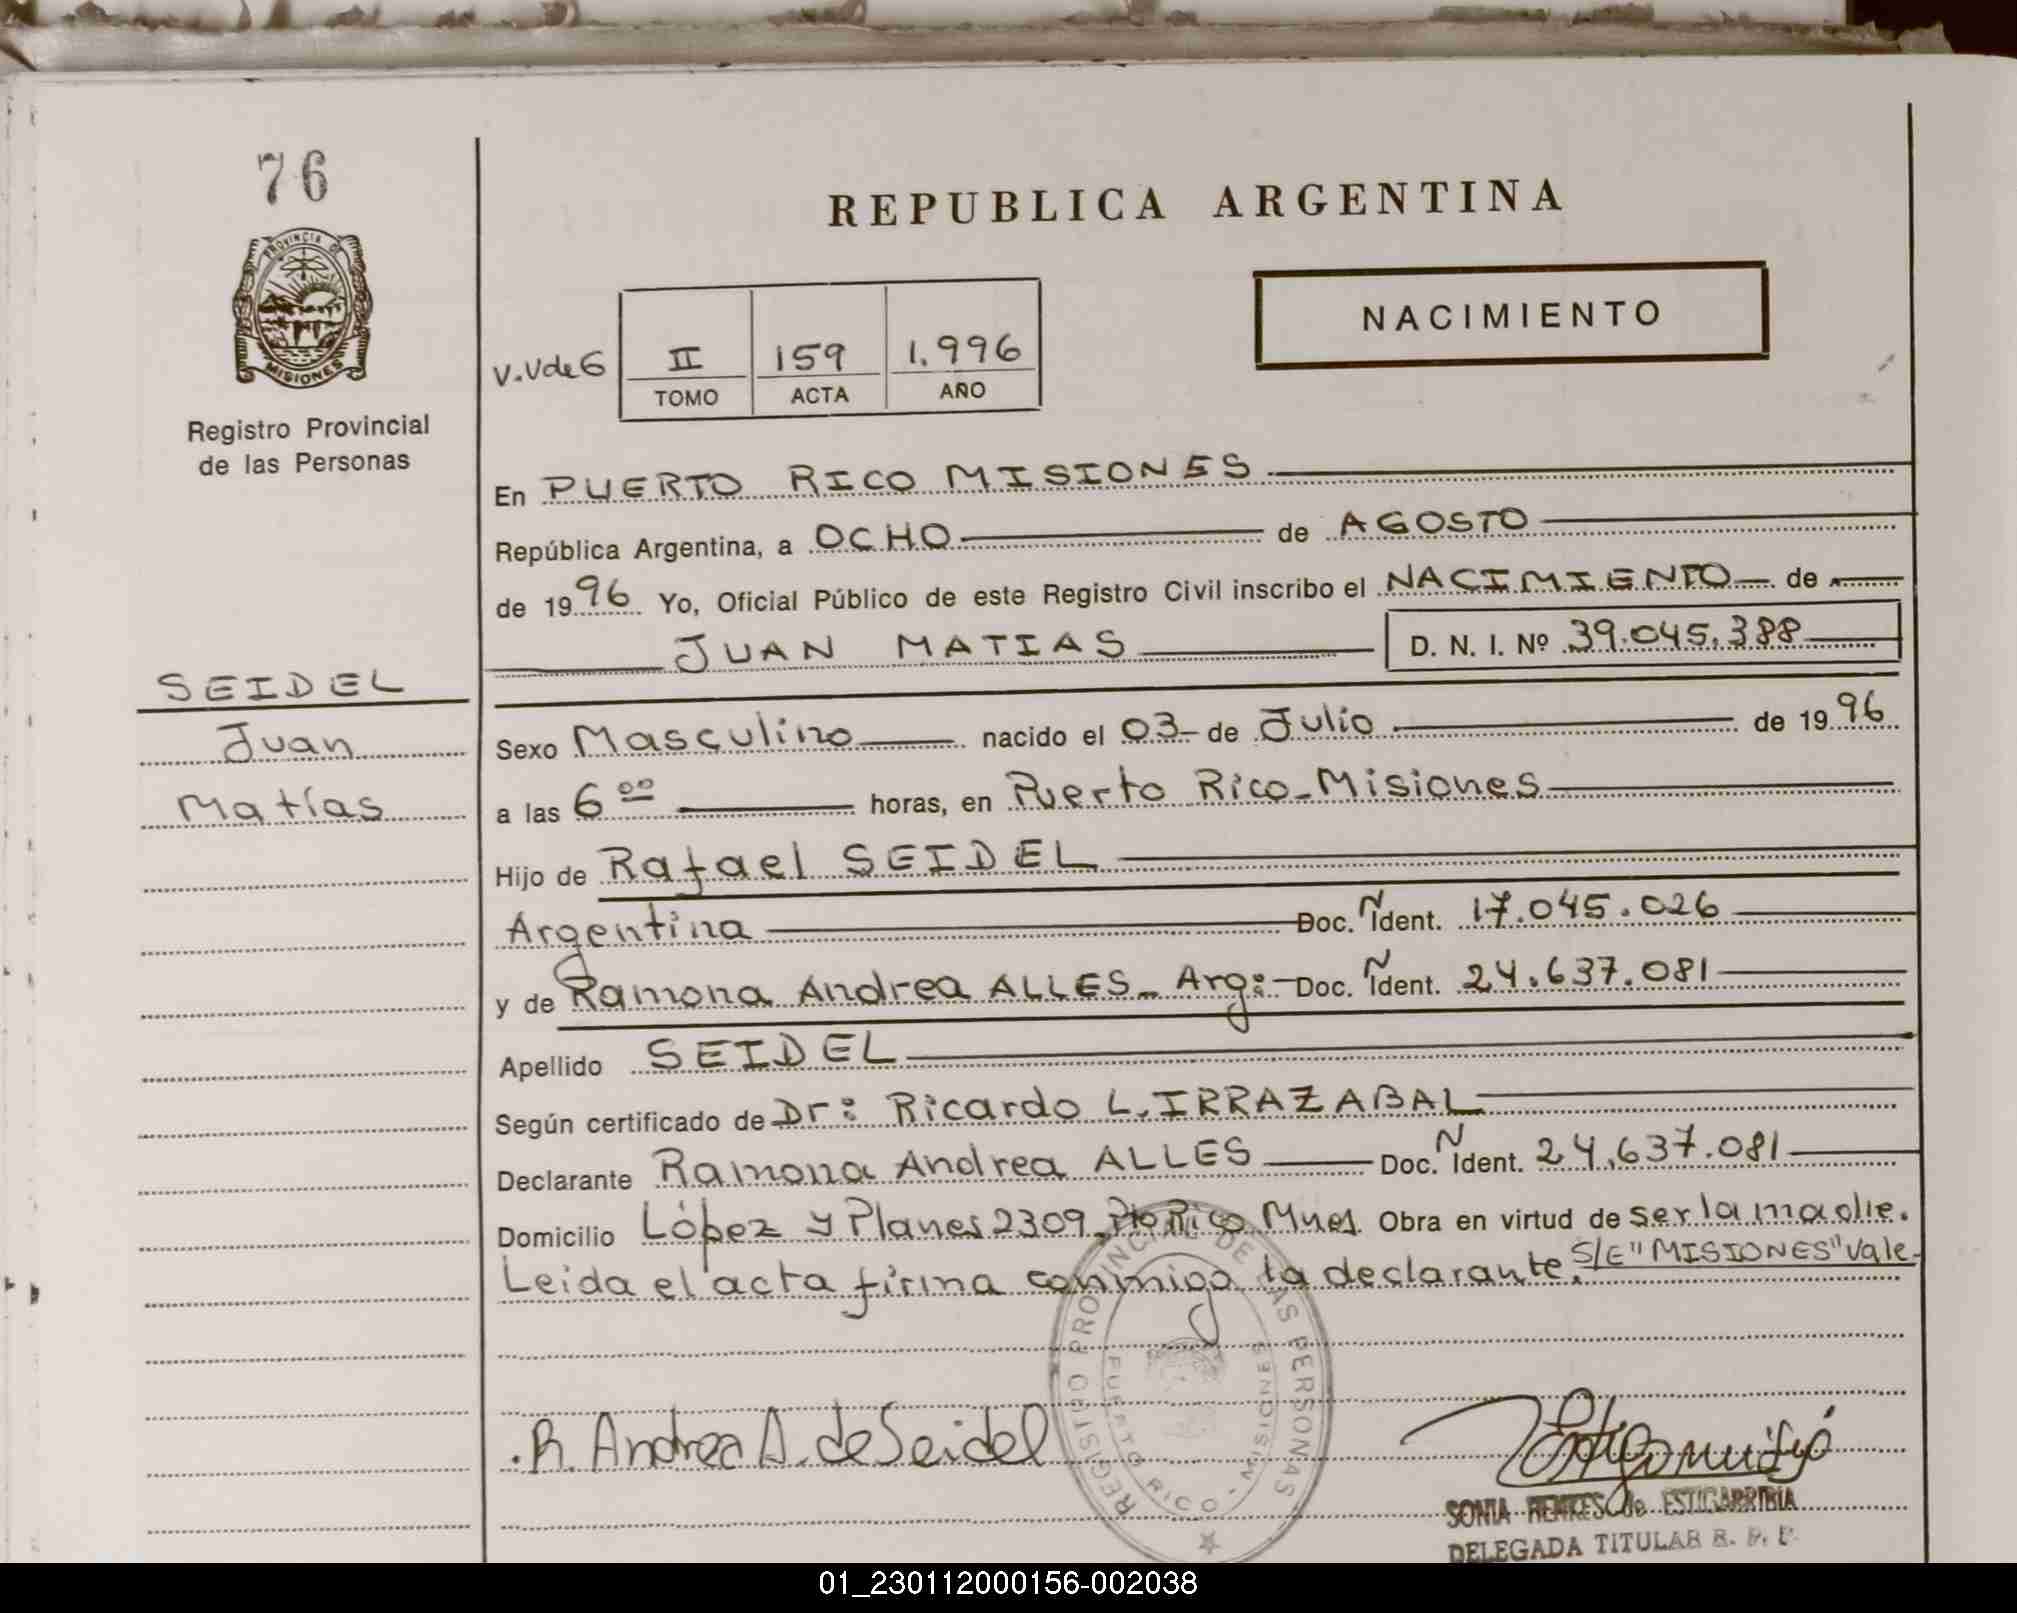 76
PROVINCIA DE
MISIONES
Registro Provincial
de las Personas
REPUBLICA ARGENTINA
NACIMIENTO
V.Vde6
II 159 1.996
TOMO ACTA AÑO
En PUERTO RICO MISIONES
República Argentina, a OCHO de AGOSTO
de 1996 Yo, Oficial Público de este Registro Civil inscribo el NACIMIENTO de
JUAN MATIAS D. N. I. Nº 39.045.388
SEIDEL
Juan
Matías
Sexo Masculino nacido el 03 de Julio de 1996
a las 6 00 horas, en Puerto Rico-Misiones
Hijo de Rafael SEIDEL
Argentina Doc. Ident. 17.045.026
y de Ramona Andrea ALLES- Arg: Doc. Ident. 24.637.081
Apellido SEIDEL
Según certificado de Dr: Ricardo L. IRRAZABAL
Declarante Ramona Andrea ALLES Doc. Ident. 24.637.081
Domicilio López y Planes 2309. Pto Rico Mnes. Obra en virtud de ser la madre.
Leida el acta firma conmigo la declarante. S/E "MISIONES" Vale-
REGISTRO PROVINCIAL DE LAS PERSONAS
PUERTO RICO - MISIONES
R. Andrea A. de Seidel
SONIA HENKES de ESTIGARRIBIA
DELEGADA TITULAR R. P. P.
01_230112000156-002038